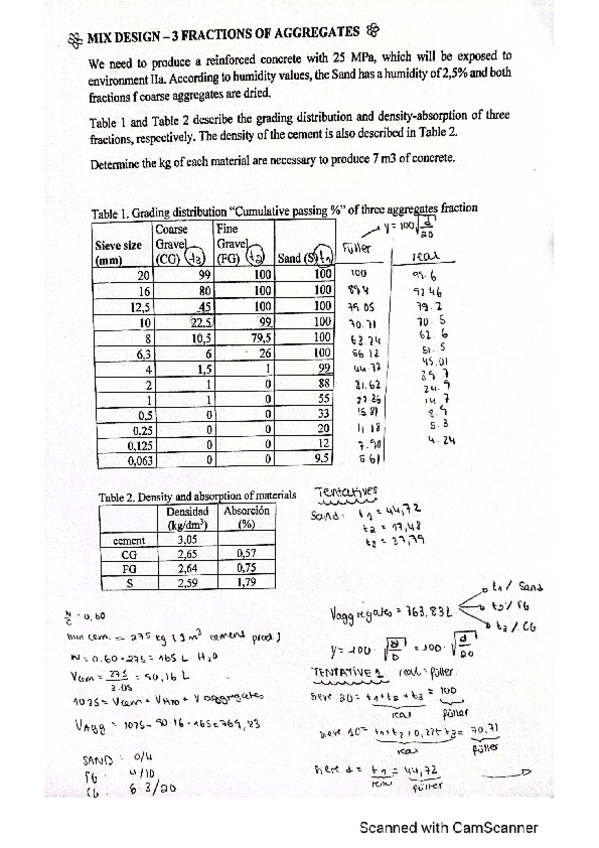 MIX DESIGN – 3 FRACTIONS OF AGGREGATES
We need to produce a reinforced concrete with 25 MPa, which will be exposed to
environment IIa. According to humidity values, the Sand has a humidity of 2,5% and both
fractions f coarse aggregates are dried.
Table 1 and Table 2 describe the grading distribution and density-absorption of three
fractions, respectively. The density of the cement is also described in Table 2.
Determine the kg of each material are necessary to produce 7 m3 of concrete.
Table 1. Grading distribution "Cumulative passing %" of three aggregates fraction
y = 100 √d/20
Sieve size (mm) Coarse Gravel (CG) t3 Fine Gravel (FG) t2 Sand (S) t1 Füller real
20 99 100 100 100 99.6
16 80 100 100 89.4 92.46
12,5 45 100 100 79.05 79.2
10 22,5 99 100 70.71 70.5
8 10,5 79,5 100 63.24 62.6
6,3 6 26 100 56.12 51.5
4 1,5 1 99 44.72 45.01
2 1 0 88 31.62 39.7
1 1 0 55 22.36 24.9
0,5 0 0 33 15.81 14.7
0,25 0 0 20 11.18
0,125 0 0 12 7.90 5.3
0,063 0 0 9,5 5.61 4.24
Table 2. Density and absorption of materials
Densidad (kg/dm³) Absorción (%)
cement 3,05
CG 2,65 0,57
FG 2,64 0,75
S 2,59 1,79
Tentatives
Sand: t1 = 44,72
t2 = 17,48
t3 = 37,79
W/C = 0,60
min cem. = 275 kg (1 m³ cement prod)
W = 0.60 · 275 = 165 L H2O
Vcem = 275/3.05 = 90,16 L
1025 = Vcem + VH2O + V aggregates
VAgg = 1025 - 90.16 - 165 = 769,83
SAND: 0/4
FG 4/10
CG 6.3/20
Vaggregates = 763,83L
t1 / Sand
t2 / FG
t3 / CG
y = 100 · √d/D = 100 · √d/20
TENTATIVE 1 real = füller.
t1 + t2 + t3 = 100
real füller
t1 + t2 + 0,225 t3 = 70.71
real füller
t1 = 44,72
real füller
Scanned with CamScanner